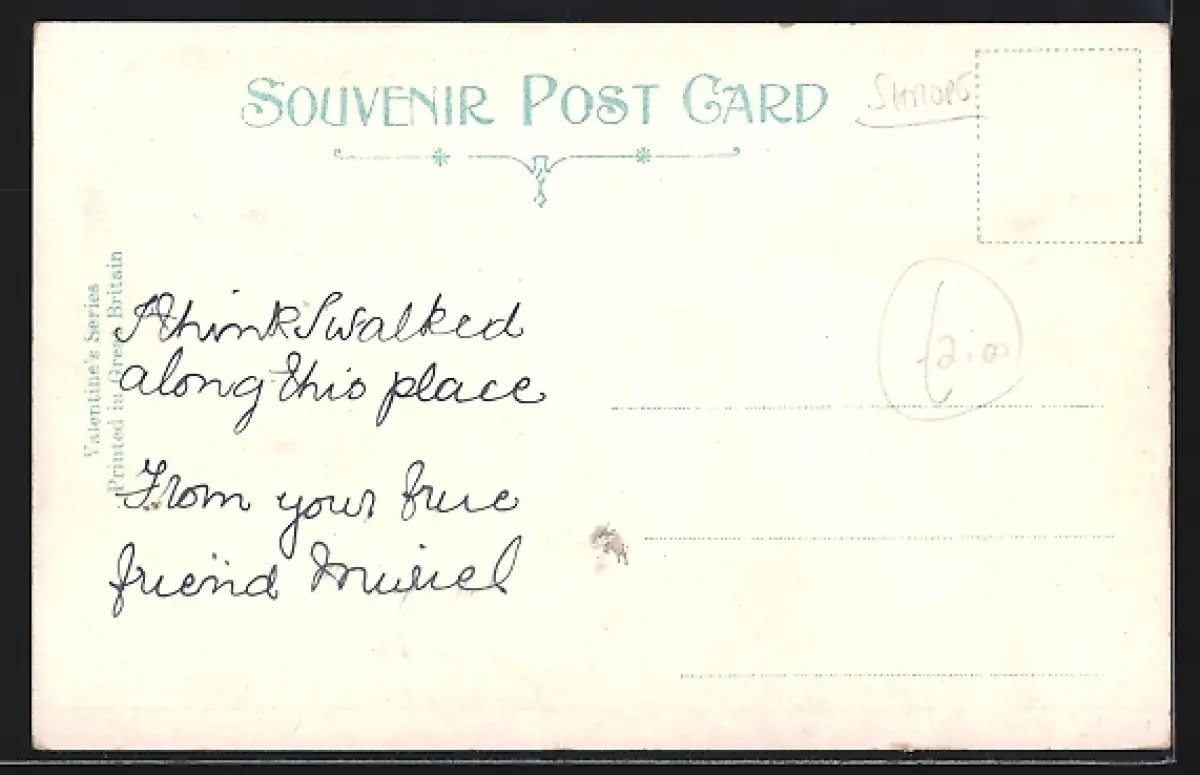 SOUVENIR POST CARD
SHROPS
Valentine's Series
Printed in Great Britain
I think I walked
along this place
From your true
friend Muriel
£2.00